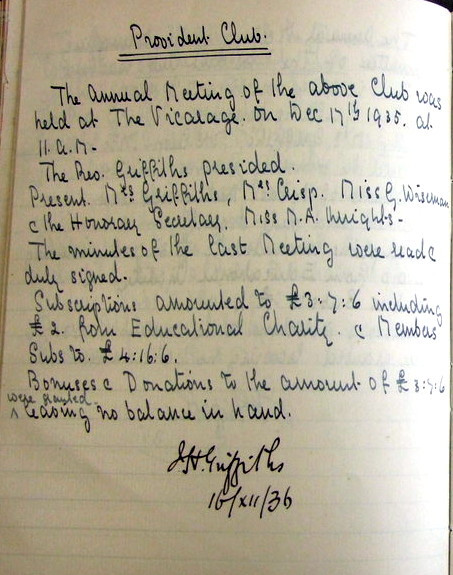 Provident Club.
The Annual Meeting of the above Club was
held at The Vicarage. on Dec 17th 1935. at
11. a.m.
The Rev. Griffiths presided.
Present. Mrs Griffiths, Mrs Crisp. Miss G. Wiseman
& the Honorary Secretary. Miss M.A. Knights.
The minutes of the last Meeting were read &
duly signed.
Subscriptions amounted to £3:7:6 including
£2. from Educational Charity. & Members
Subs to. £4:16:6.
Bonuses & Donations to the amount of £3:7:6
were granted
^ leaving no balance in hand.
J.H. Griffiths
16/XII/36